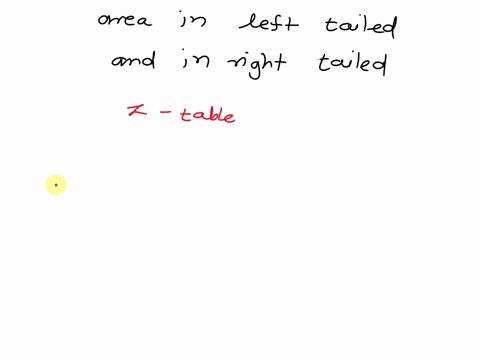 area in left tailed
and in right tailed
z - table